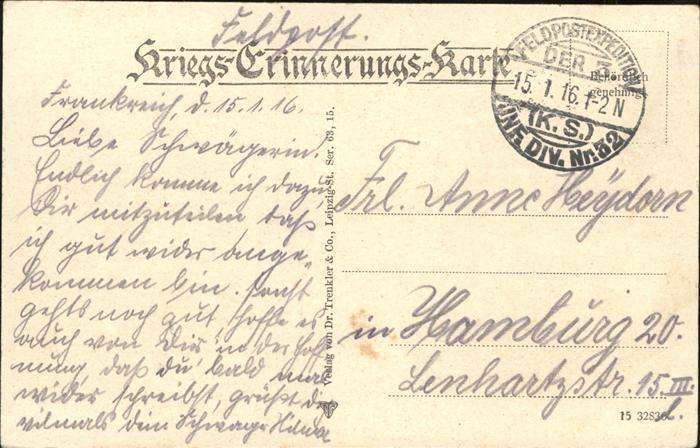 Feldpost.
Kriegs-Erinnerungs-Karte
FELDPOSTEXPEDITION
DER 3.
15. 1. 16. 1-2 N
(K. S.)
INF. DIV. Nr. 32
Behördlich
genehmigt
Frankreich, d. 15.1.16.
Liebe Schwägerin!
Endlich komme ich dazu,
Dir mitzuteilen daß
ich gut wider ange-
kommen bin. sonst
gehts noch gut, hoffe es
auch von Dir in der Hoff-
nung, daß du bald mal
wider schreibst, grüßt di
vilmals dein Schwager
Verlag von Dr. Trenkler & Co., Leipzig-St. Ser. 63, 15.
Frl. Anne Heydorn
in Hamburg 20.
Lenhartzstr. 15 III
15 32836